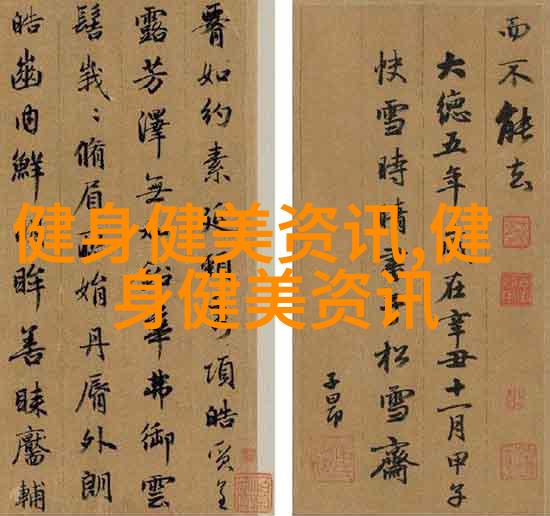 健身健美资讯,健
身健美资讯
如約素延項皓質呈
露芳澤無華弗御雲
髻峩〻脩眉娟丹脣外朗
皓齒内鮮眸善睞靨輔
而不能去
大德五年在辛丑十一月甲子
快雪時晴書于松雪齋
子昂